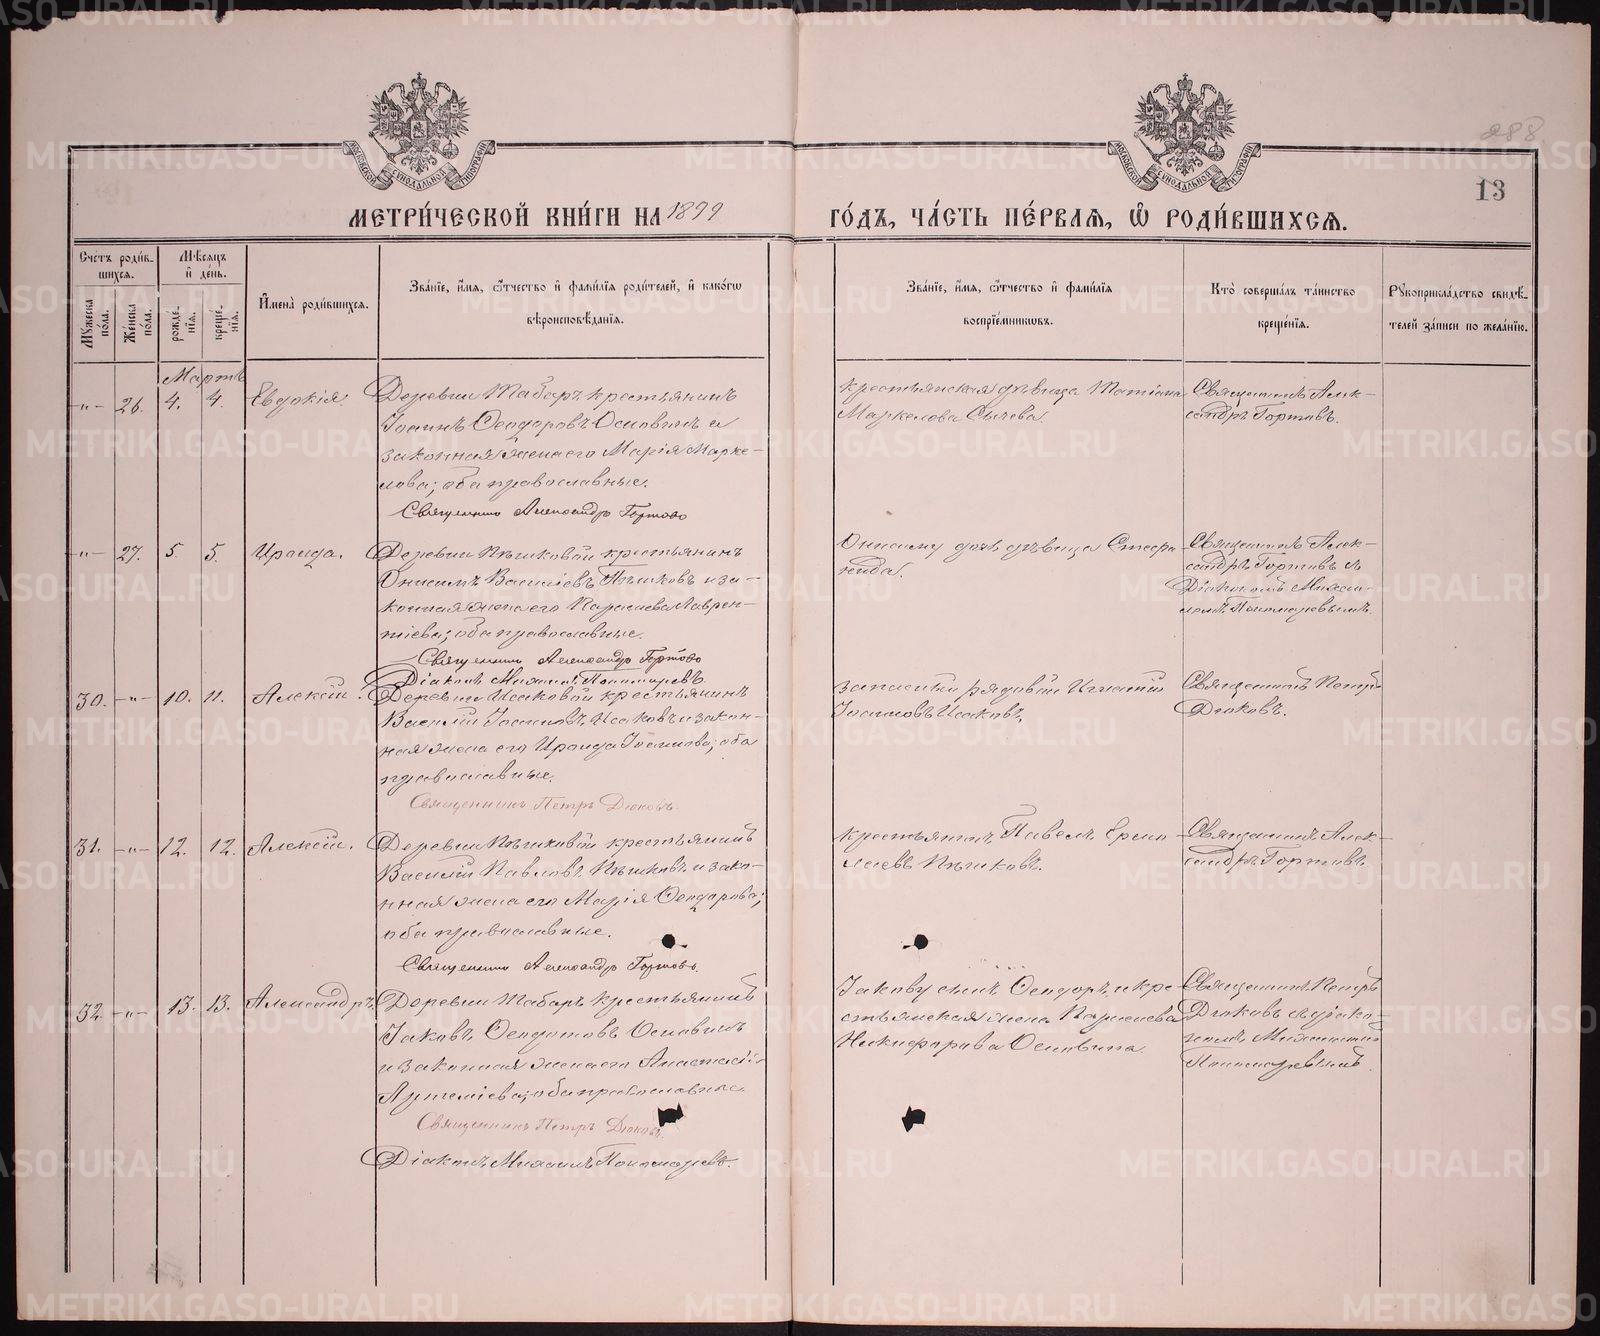 288
13
МОСКОВСКОЙ СѴНОДАЛЬНОЙ ТИПОГРАФІИ
МОСКОВСКОЙ СѴНОДАЛЬНОЙ ТИПОГРАФІИ
МЕТРИ́ЧЕСКОЙ КНИ́ГИ НА 1899 ГО́ДЪ, ЧА́СТЬ ПЕ́РВАѦ, Ѽ РОДИ́ВШИХСѦ.
Сче́тъ роди́в-
шихсѧ.
Мѣ́сѧцъ
и҆ де́нь.
Мꙋ́жеска
по́ла.
Же́нска
по́ла.
рожде́-
нїѧ.
креще́-
нїѧ.
И҆мена̀ роди́вшихсѧ.
Зва́нїе, и҆́мѧ, ѻ҆́тчество и҆ фами́лїѧ роди́телей, и҆ како́гѡ
вѣроисповѣ́данїѧ.
Зва́нїе, и҆́мѧ, ѻ҆́тчество и҆ фами́лїѧ
воспрїе́мникѡвъ.
Кто̀ соверша́лъ та́инство
креще́нїѧ.
Рꙋкоприкла́дство свидѣ́-
телей за́писи по жела́нїю.
Мартъ
-„- 26. 4. 4. Евдокія.
Деревни Табаръ крестьянинъ
Іоаннъ Ѳеодоровъ Осиповинъ и
законная жена его Марія Марке-
лова; оба православные.
Священникъ Александръ Гортовъ
крестьянская дѣвица Татіана
Маркелова Сычева.
Священникъ Алек-
сандръ Гортовъ.
-„- 27. 5 5. Ираида.
Деревни Пѣшковой крестьянинъ
Онисимъ Василіевъ Пѣшковъ и за-
конная жена его Параскева Лаврен-
тіева; оба православные.
Священникъ Александръ Гортовъ
Діаконъ Михаилъ Пономаревъ
Онисиму дочь дѣвица
Священникъ Алек-
сандръ Гортовъ съ
Діакономъ Михаи-
ломъ Пономаревымъ
30. -„- 10. 11. Алексій.
Деревни Исаковой крестьянинъ
Василій Іоанновъ Исаковъ и закон-
ная жена его Ираида Іоаннова; оба
православные.
Священникъ Петръ Дюковъ.
запасный рядовой Игнатій
Іоанновъ Исаковъ.
Священникъ Петръ
Дюковъ.
31. -„- 12. 12. Алексій.
Деревни Пѣшковой крестьянинъ
Василій Павловъ Пѣшковъ и зако-
нная жена его Марія Ѳеодорова;
оба православные.
Священникъ Александръ Гортовъ.
крестьянинъ Павелъ Ермо-
лаевъ Пѣшковъ.
Священникъ Алек-
сандръ Гортовъ.
32. -„- 13. 13. Александръ
Деревни Табаръ крестьянинъ
Іаковъ Ѳеодотовъ Осиповинъ
и законная жена его Анастасія
Артеміева; оба православные.
Священникъ Петръ Дюковъ
Діаконъ Михаилъ Пономаревъ.
Іакову сынъ Ѳеодоръ и кре-
стьянская жена Параскева
Никифорова Осиповина.
Священникъ Петръ
Дюковъ съ діако-
номъ Михаиломъ
Пономаревымъ.